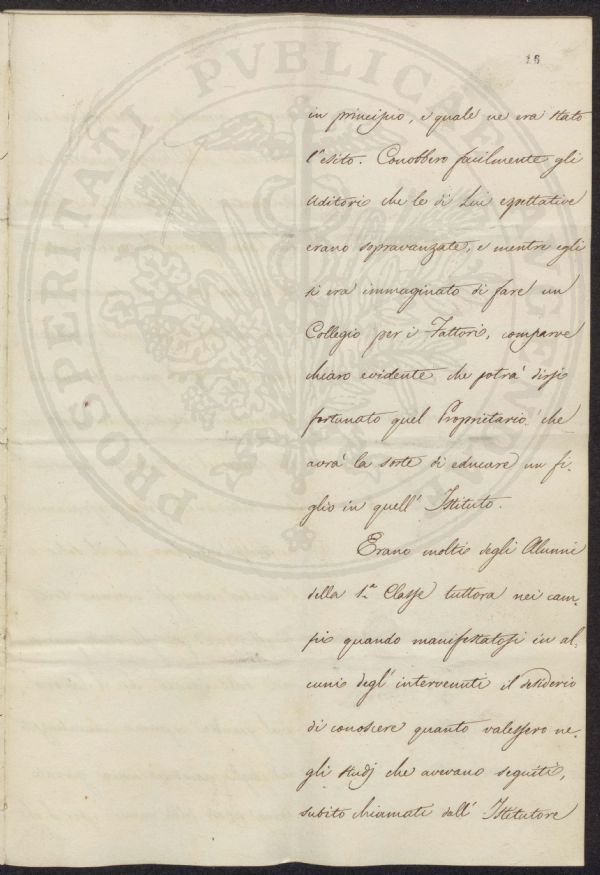 PROSPERITATI PVBLICAE
16
in principio, e quale ne era stato
l'esito. Conobbero facilmente gli
Uditori che le di Lui espettative
erano sopravanzate, e mentre egli
si era immaginato di fare un
Collegio per i Fattori, comparve
chiaro evidente che potrà dirsi
fortunato quel Proprietario che
avrà la sorte di educare un fi-
glio in quell' Istituto.
Erano molti degli Alunni
della 1.a Classe tuttora nei cam-
pi quando manifestatosi in al-
cuni degl' intervenuti il desiderio
di conoscere quanto valessero ne-
gli studj che avevano seguiti,
subito chiamati dall' Istitutore